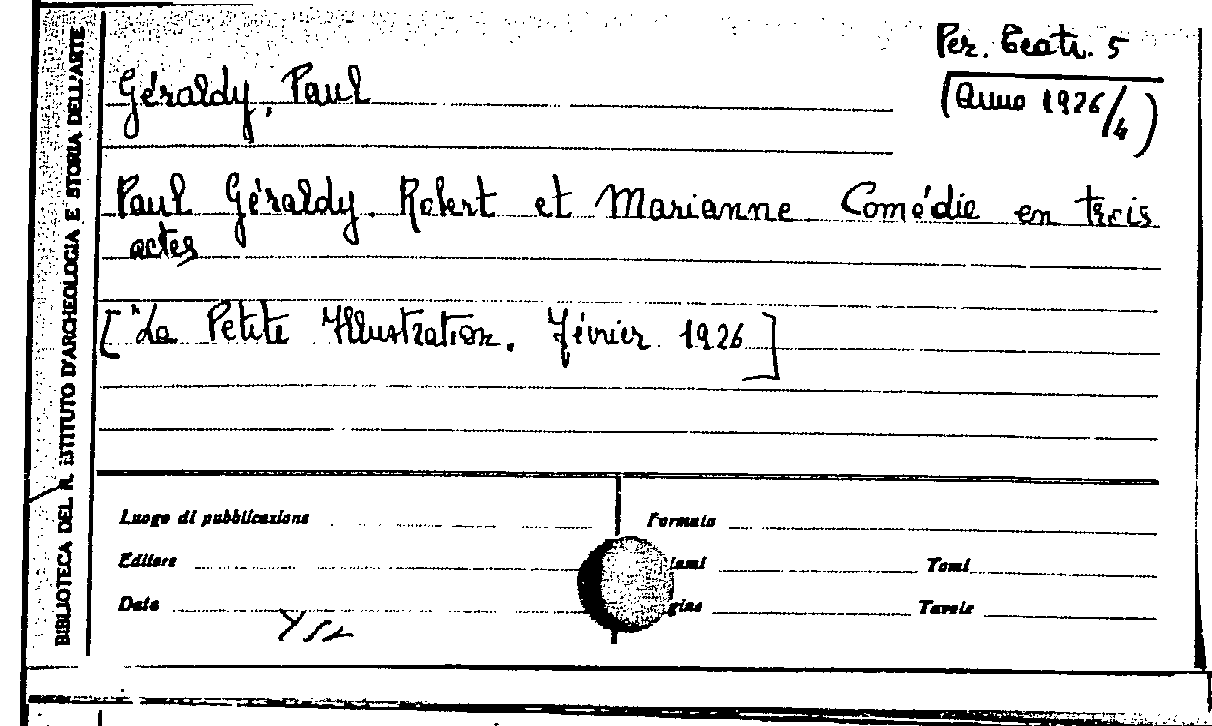 BIBLIOTECA DEL R. ISTITUTO D'ARCHEOLOGIA E STORIA DELL'ARTE
Per. Teatr. 5
(Anno 1926/4)
Géraldy, Paul
Paul Géraldy. Robert et Marianne Comédie en trois
actes
["La Petite Illustration. Février 1926]
Luogo di pubblicazione
Formato
Editore
lumi
Tomi
Data
gine
Tavole